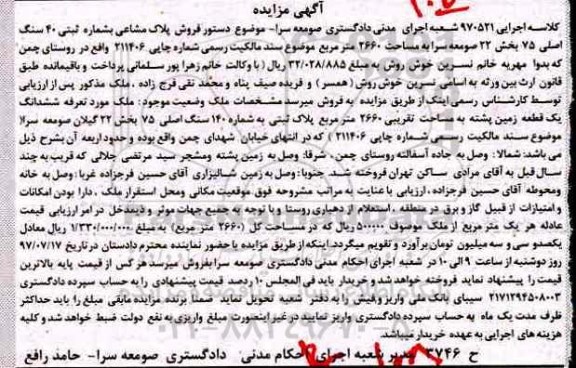 آگهی مزایده
کلاسه اجرایی ۹۷۰۵۲۱ شعبه اجرای مدنی دادگستری صومعه سرا- موضوع دستور فروش پلاک مشاعی بشماره ثبتی ۴۰ سنگ
اصلی ۷۵ بخش ۲۲ صومعه سرا به مساحت ۲۶۶۰ متر مربع موضوع سند مالکیت رسمی شماره چاپی ۲۱۱۴۰۶ واقع در روستای چمن
که بدوا مهریه خانم نسرین خوش روش به مبلغ ۳۲/۰۲۸/۸۸۵ ریال (با وکالت خانم زهرا پور سلمانی پرداخت و باقیمانده طبق
قانون ارث بین ورثه به اسامی نسرین خوش روش (همسر) و فریده صیف پناه و محمد تقی فرج زاده ، ملک مذکور پس از ارزیابی
توسط کارشناس رسمی اینک از طریق مزایده به فروش میرسد مشخصات ملک وضعیت موجود : ملک مورد تعرفه ششدانگ
یک قطعه زمین پشته به مساحت تقریبی ۲۶۶۰ متر مربع پلاک ثبتی به شماره ۱۴۰ سنگ اصلی ۷۵ بخش ۲۲ گیلان صومعه سرا(
موضوع سند مالکیت رسمی شماره چاپی ۲۱۱۴۰۶ ) که در انتهای خیابان شهدای چمن واقع بوده و حدود اربعه آن بشرح ذیل
می باشد: شمالا : وصل به جاده آسفالته روستای چمن ، شرقا: وصل به زمین پشته ومشجر سید مرتضی جلالی که قریب به چند
سال قبل به آقای مرادی ساکن تهران فروخته شد. جنوبا: وصل به زمین شالیزاری آقای حسین فرجزاده غربا: وصل به خانه
ومحوطه آقای حسین فرجزاده ، ارزیابی با عنایت به مراتب مشروحه فوق موقعیت مکانی ومحل استقرار ملک ، دارا بودن امکانات
و امتیازات از قبیل گاز و برق در منطقه ، استعلام از دهیاری روستا و با توجه به جمیع جهات موثر و ذیمدخل در امر ارزیابی قیمت
عادله هر یک متر مربع از ملک موصوف ۵۰۰۰۰۰ ریال که در مساحت کل (۲۶۶۰ متر مربع) به مبلغ ۱/۳۳۰/۰۰۰/۰۰۰ ریال معادل
یکصدو سی و سه میلیون تومان برآورد و تقویم میگردد. اینکه از طریق مزایده با حضور نماینده محترم دادستان در تاریخ ۹۷/۰۷/۱۷
روز دوشنبه از ساعت ۹ الی ۱۰ در شعبه اجرای احکام مدنی دادگستری صومعه سرا بفروش میرسد هر کس از قیمت پایه بالاترین
قیمت را پیشنهاد نماید فروخته خواهد شد و خریدار باید فی المجلس ۱۰ درصد قیمت پیشنهادی را به حساب سپرده دادگستری
۲۱۷۱۲۹۴۵۰۸۰۰۳ سیبای بانک ملی واریز وفیش را به دفتر شعبه تحویل نماید ضمنا برنده مزایده مابقی مبلغ را باید حداکثر
ظرف مدت یک ماه به حساب سپرده دادگستری واریز نمایید در غیر اینصورت مبلغ واریزی به نفع دولت ضبط خواهد شد و کلیه
هزینه های اجرایی به عهده خریدار میباشد.
ح ۳۷۴۶ مدیر شعبه اجرای احکام مدنی دادگستری صومعه سرا- حامد رافع